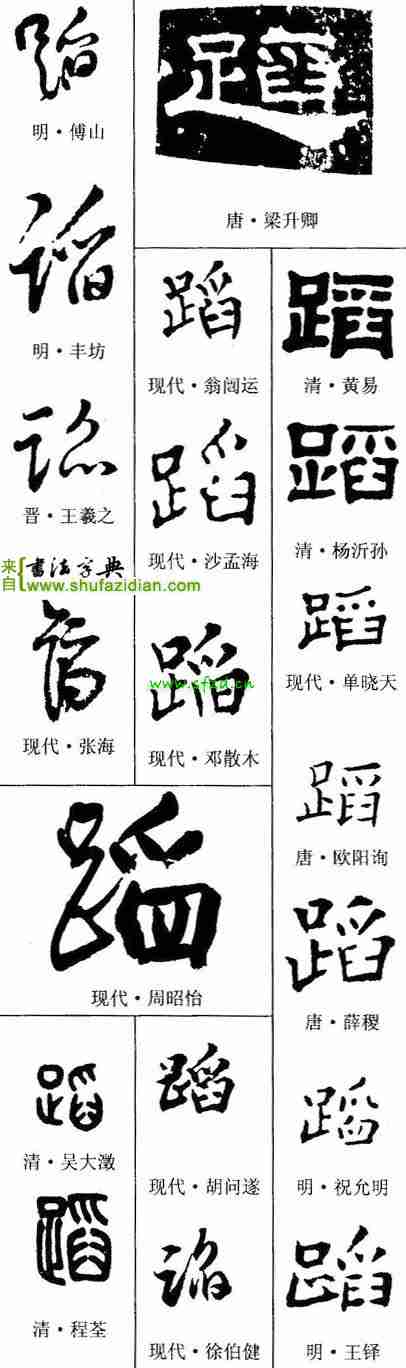 蹈
明·傅山
蹈
唐·梁升卿
蹈
明·丰坊
蹈
晋·王羲之
来自 书法字典
www.shufazidian.com
蹈
现代·张海
蹈
现代·翁闿运
蹈
现代·沙孟海
www.sfzd.cn
蹈
现代·邓散木
蹈
清·黄易
蹈
清·杨沂孙
蹈
现代·单晓天
蹈
唐·欧阳询
蹈
唐·薛稷
蹈
明·祝允明
蹈
明·王铎
蹈
现代·周昭怡
蹈
清·吴大澂
蹈
清·程荃
蹈
现代·胡问遂
蹈
现代·徐伯健